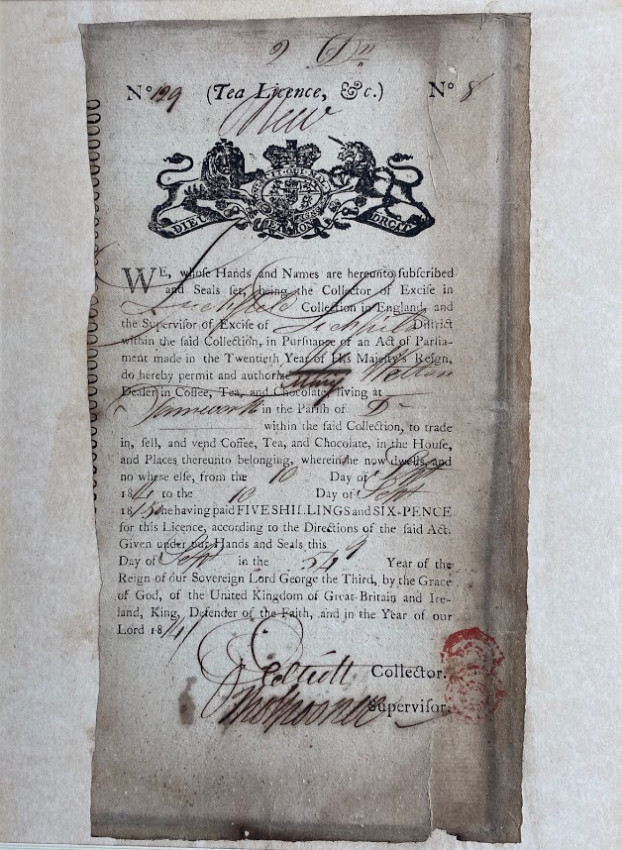 N° 129 (Tea Licence, &c.) N° 8
New
HONI SOIT QUI MAL Y PENSE
DIEU ET MON DROIT
WE, whoſe Hands and Names are hereunto ſubſcribed
and Seals ſet, being the Collector of Exciſe in
Litchfield Collection in England, and
the Superviſor of Exciſe of Lichfield Diſtrict
within the ſaid Collection, in Purſuance of an Act of Parlia-
ment made in the Twentieth Year of His Majeſty's Reign,
do hereby permit and authorize Mary
Dealer in Coffee, Tea, and Chocolate, living at
Tamworth in the Pariſh of Do
within the ſaid Collection, to trade
in, ſell, and vend Coffee, Tea, and Chocolate, in the Houſe,
and Places thereunto belonging, wherein ſhe now dwells, and
no where elſe, from the 10 Day of Sept
1814 to the 10 Day of Sept
1815 ſhe having paid FIVE SHILLINGS and SIX-PENCE
for this Licence, according to the Directions of the ſaid Act.
Given under our Hands and Seals this 9
Day of Sept in the 54 Year of the
Reign of our Sovereign Lord George the Third, by the Grace
of God, of the United Kingdom of Great-Britain and Ire-
land, King, Defender of the Faith, and in the Year of our
Lord 1814
Elliott Collector.
Superviſor.